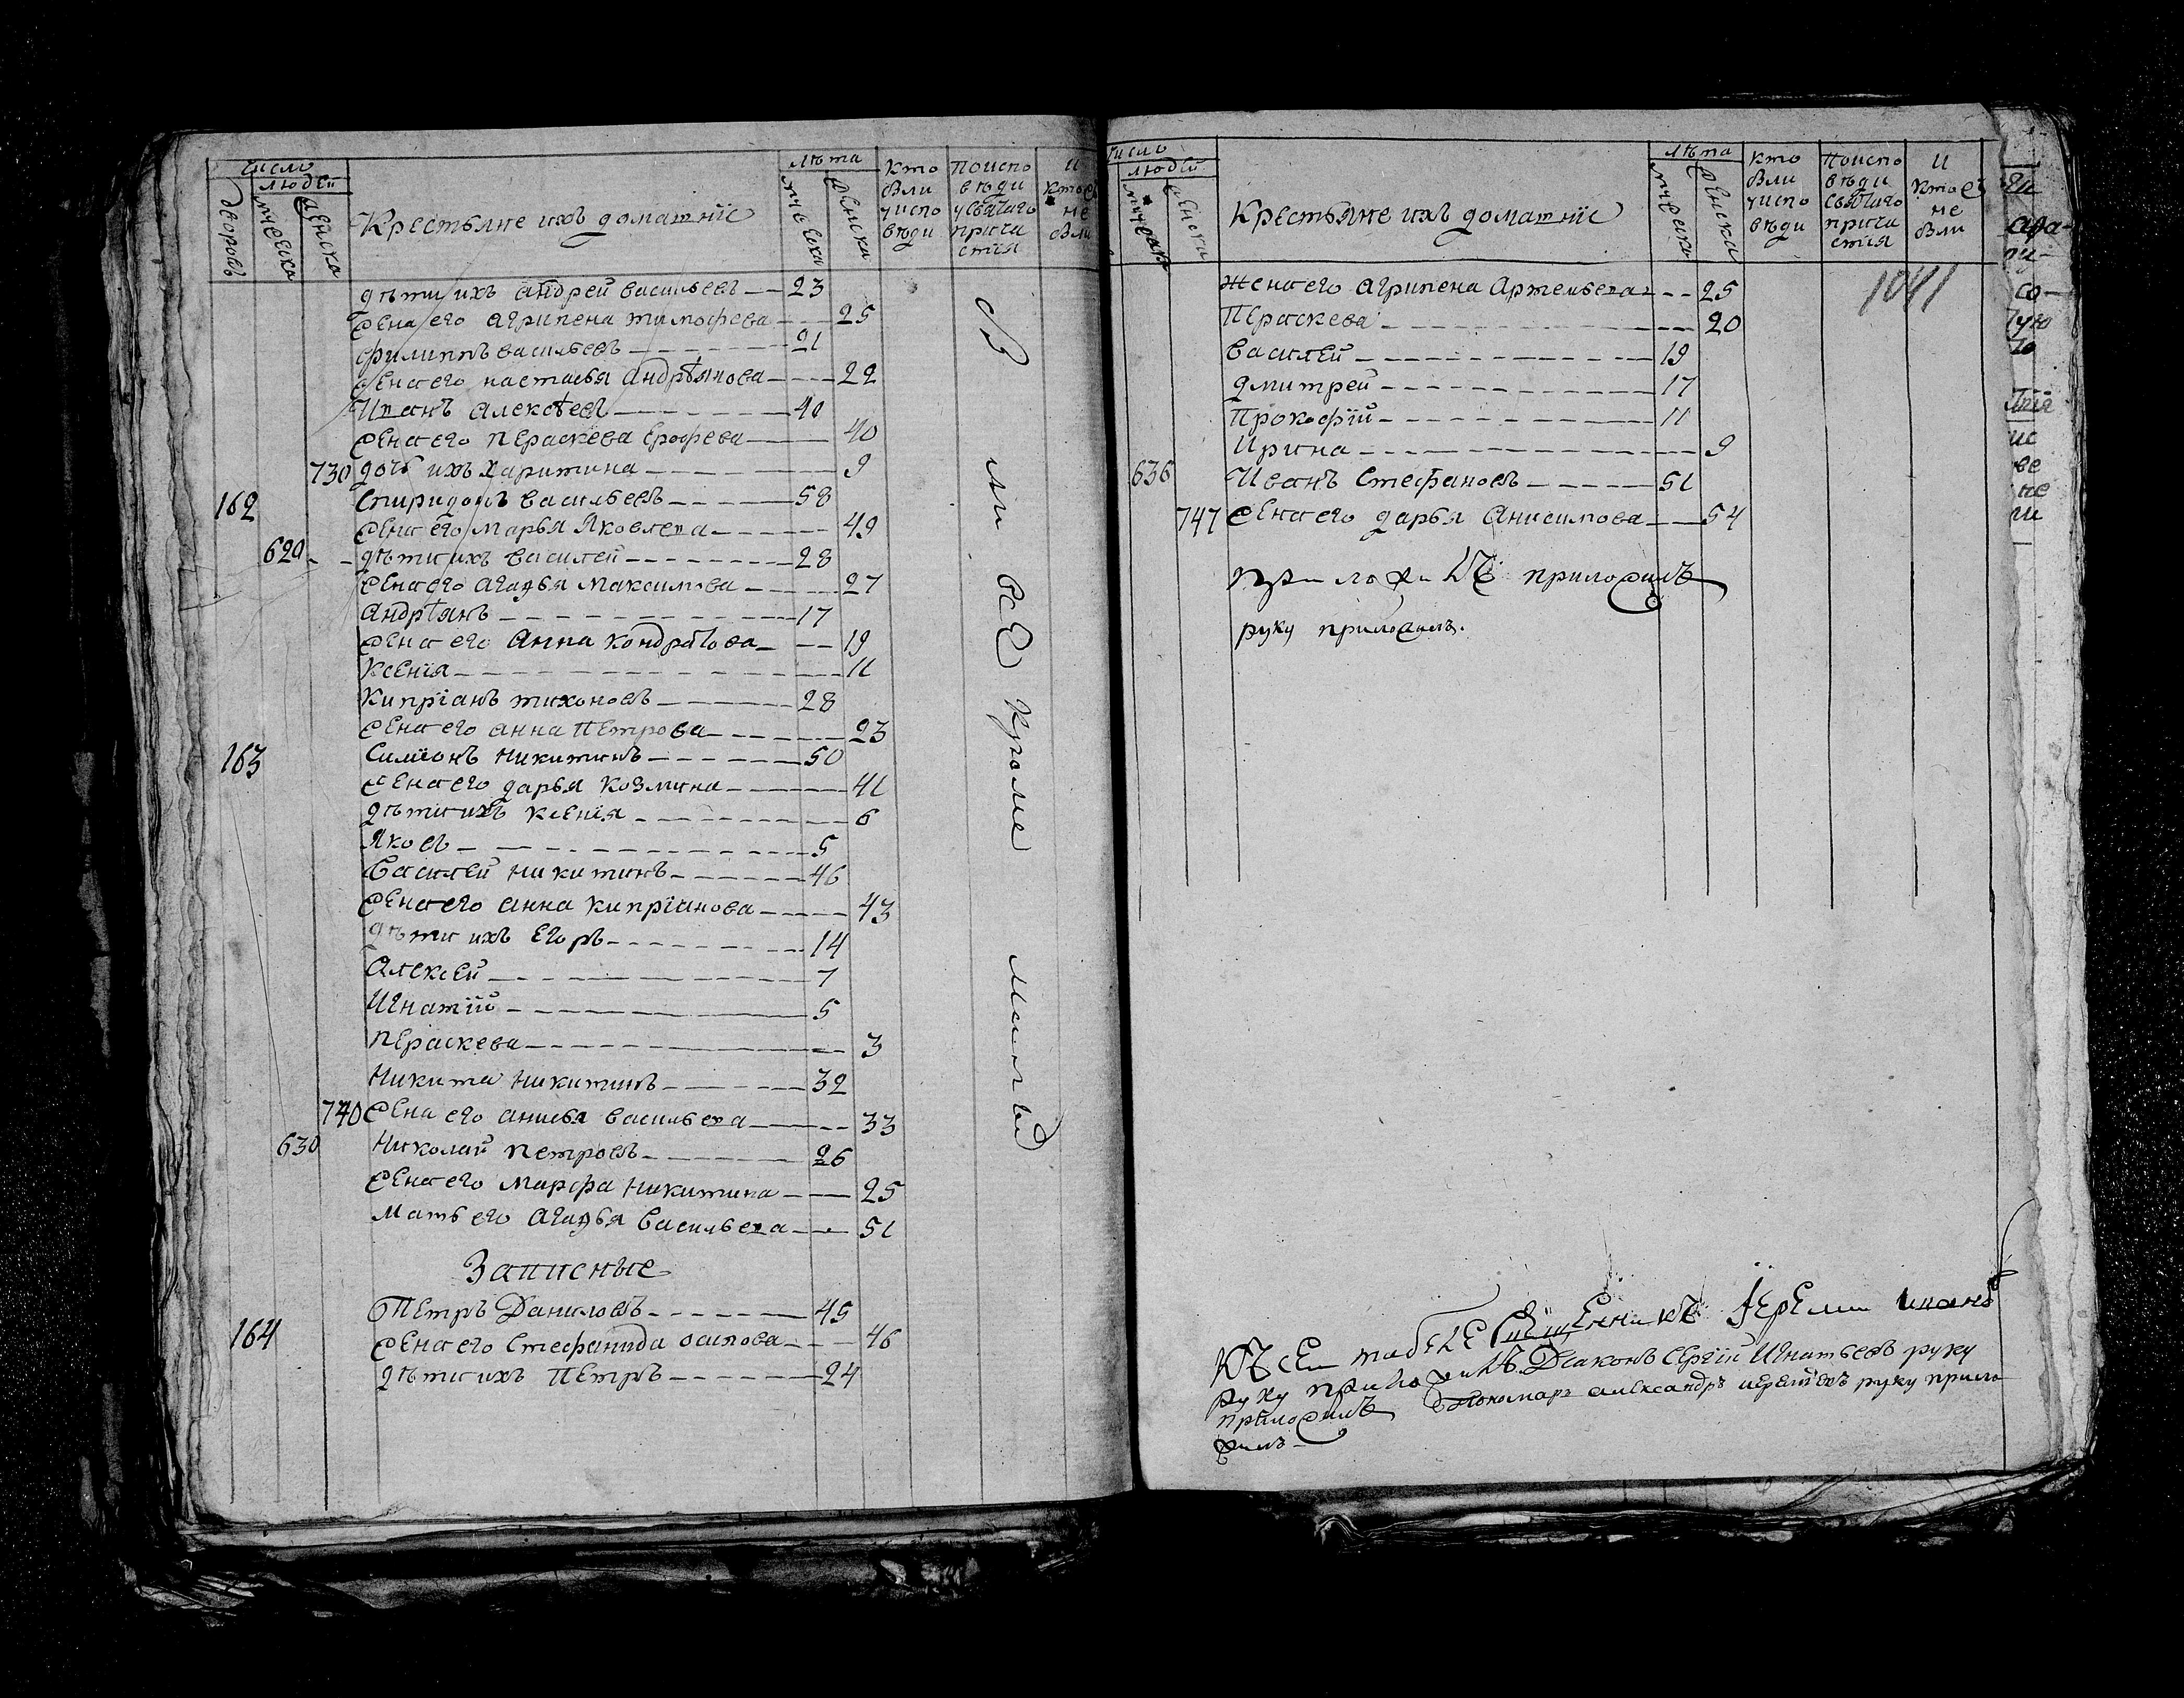 число
людей
дворовъ
мужеска
женска
Крестьяне ихъ домашнїе
лѣта
мужеска
женска
кто
были
у испо
вѣди
поиспо
вѣди
у святаго
прича
стїя
и
кто
не
были
дѣти ихъ андрей васильевъ 23
жена его агрипена тимофева 25
филиппъ васильевъ 21
жена его настасья андрѣянова 22
Иванъ алексѣевъ 40
жена его пераскева ерофева 40
730 дочь ихъ харитина 9
162 Спиридонъ васильевъ 58
жена его марья Яковлева 49
620 дѣти ихъ василей 28
жена его агафья максимова 27
андрѣянъ 17
жена его анна кондратьова 19
Ксенїя 11
Кипрїанъ тихоновъ 28
жена его анна петрова 23
163 Симїонъ никитинъ 50
жена его дарья козмина 41
дѣти ихъ ксенїя 6
Яковъ 5
Василей никитинъ 46
жена его анна кипрїанова 43
дѣти ихъ егоръ 14
алексей 7
Игнатїй 5
Пераскева 3
Никита никитинъ 32
740 жена его анисья васильева 33
630 Николай петровъ 26
жена его марфа никитина 25
мать его агафья васильева 51
Записные
164 Петръ Даниловъ 45
жена его стефанида осипова 46
дѣти ихъ петръ 24
были все кроме
число
людей
женска
Крестьяне ихъ домашнїе
лѣта
мужеска
женска
кто
были
у испо
вѣди
поиспо
вѣди
святаго
прича
стїя
и
кто
не
были
1041
жена его агрипена артемьева 25
Пераскева 20
василей 19
дмитрей 17
Прокофїй 11
Ирина 9
636 Иванъ Стефановъ 51
747 жена его дарья анисимова 54
приложилъ приложилъ
руку приложилъ.
Къ сей табеле священникъ Иереми иванъ
руку приложилъ. Дїаконъ сергїй Игнатьевъ руку
приложилъ Пономарь александръ иеремїевъ руку прило
жилъ